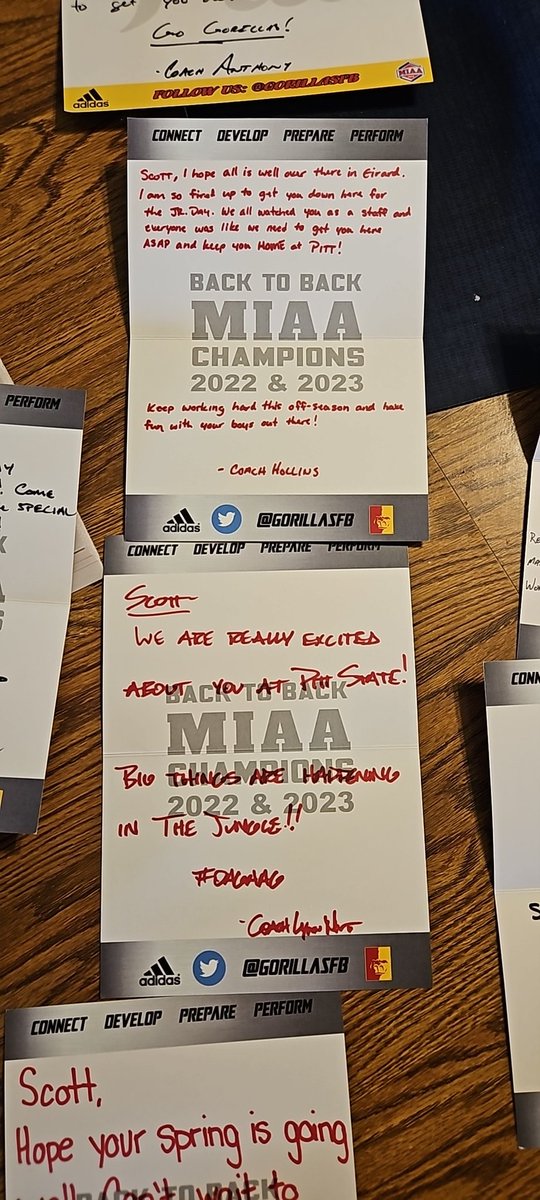 to get you
Go Gorillas!
- Coach Anthony
adidas
FOLLOW US: @GORILLASFB
MIAA
CONNECT DEVELOP PREPARE PERFORM
Scott, I hope all is well our there in Girard.
I am so fired up to get you down here for
the JR. Day. We all watched you as a staff and
everyone was like we need to get you here
ASAP and keep you HOME at PITT!
BACK TO BACK
MIAA
CHAMPIONS
2022 & 2023
Keep working hard this off-season and have
fun with your boys out there!
- Coach Hollins
adidas @GORILLASFB
PERFORM
! Come
SPECIAL
CONNECT DEVELOP PREPARE PERFORM
Scott
WE ARE REALLY EXCITED
ABOUT YOU AT PITT STATE!
BACK TO BACK
MIAA
BIG THINGS ARE HAPPENING
CHAMPIONS
2022 & 2023
IN THE JUNGLE!!
#OAGAAG
- Coach
adidas @GORILLASFB
CONNECT DEVELOP PREPARE PERFORM
Scott,
Hope your Spring is going
well. Can't wait to
BACK TO BACK